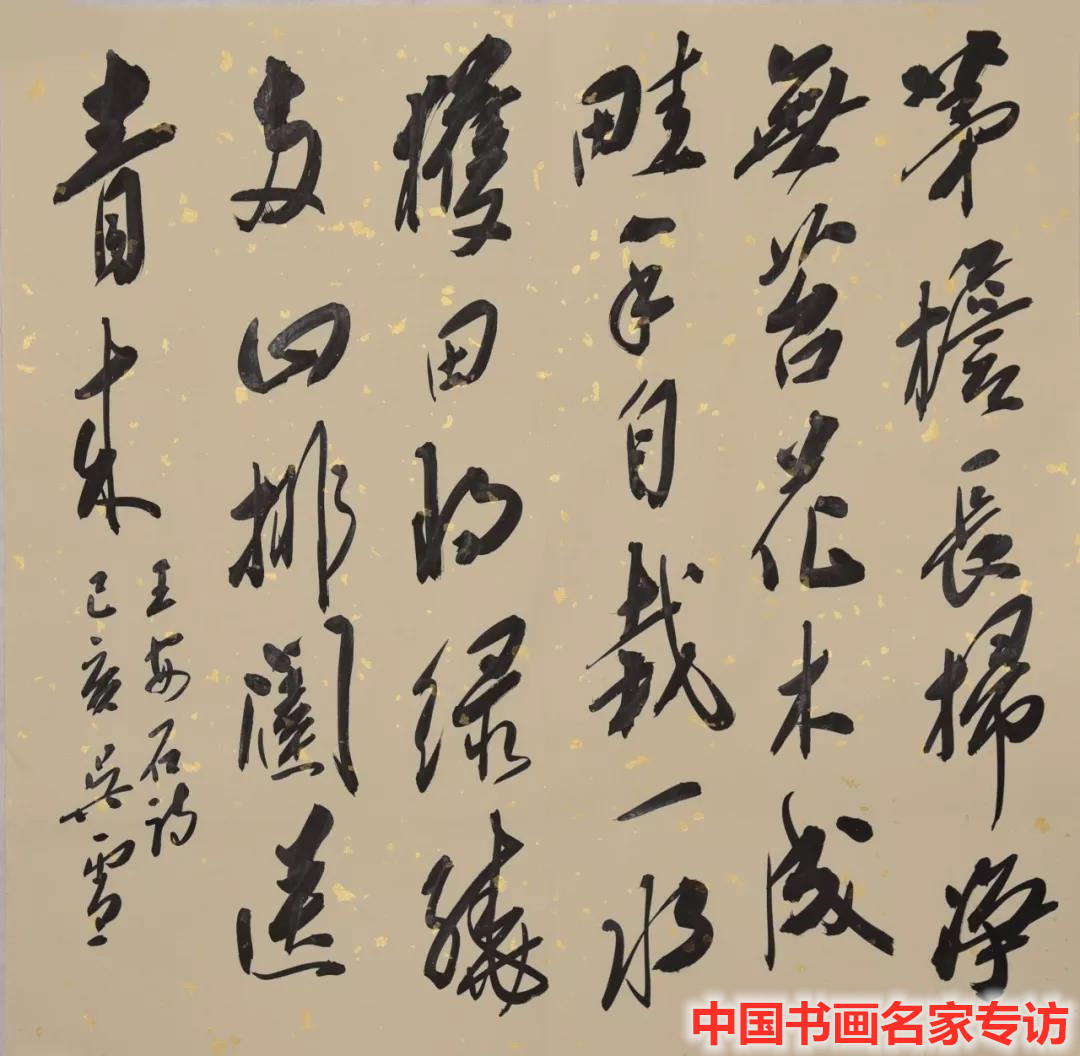 茅檐長掃淨
無苔花木成
畦手自栽一水
護田将绿繞
两山排闥送
青来
王安石詩
己亥吴雪
中国书画名家专访